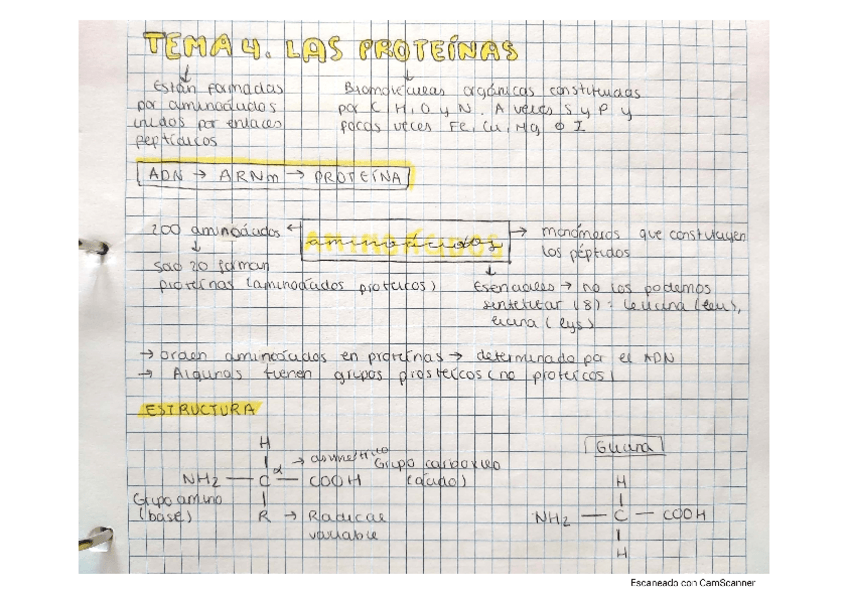 TEMA 4. LAS PROTEÍNAS
Están formadas
por aminoácidos
unidos por enlaces
peptídicos
Biomoléculas orgánicas constituidas
por C, H, O y N. A veces S y P y
pocas veces Fe, Cu, Mg o I
ADN → ARNm → PROTEÍNA
200 aminoácidos ←
↓
solo 20 forman
proteínas (aminoácidos proteicos)
aminoácidos
→ monómeros que constituyen
los péptidos
Esenciales → no los podemos
sintetizar (8) = leucina (leu),
licina (lys)
→ orden aminoácidos en proteínas → determinado por el ADN
→ Algunas tienen grupos prostéicos (no proteicos)
ESTRUCTURA
H
α → asimétrico
Grupo carboxílico
(ácido)
NH2 — C — COOH
Grupo amino
(base)
R → Radical
variable
H
NH2 — C — COOH
H
Escaneado con CamScanner